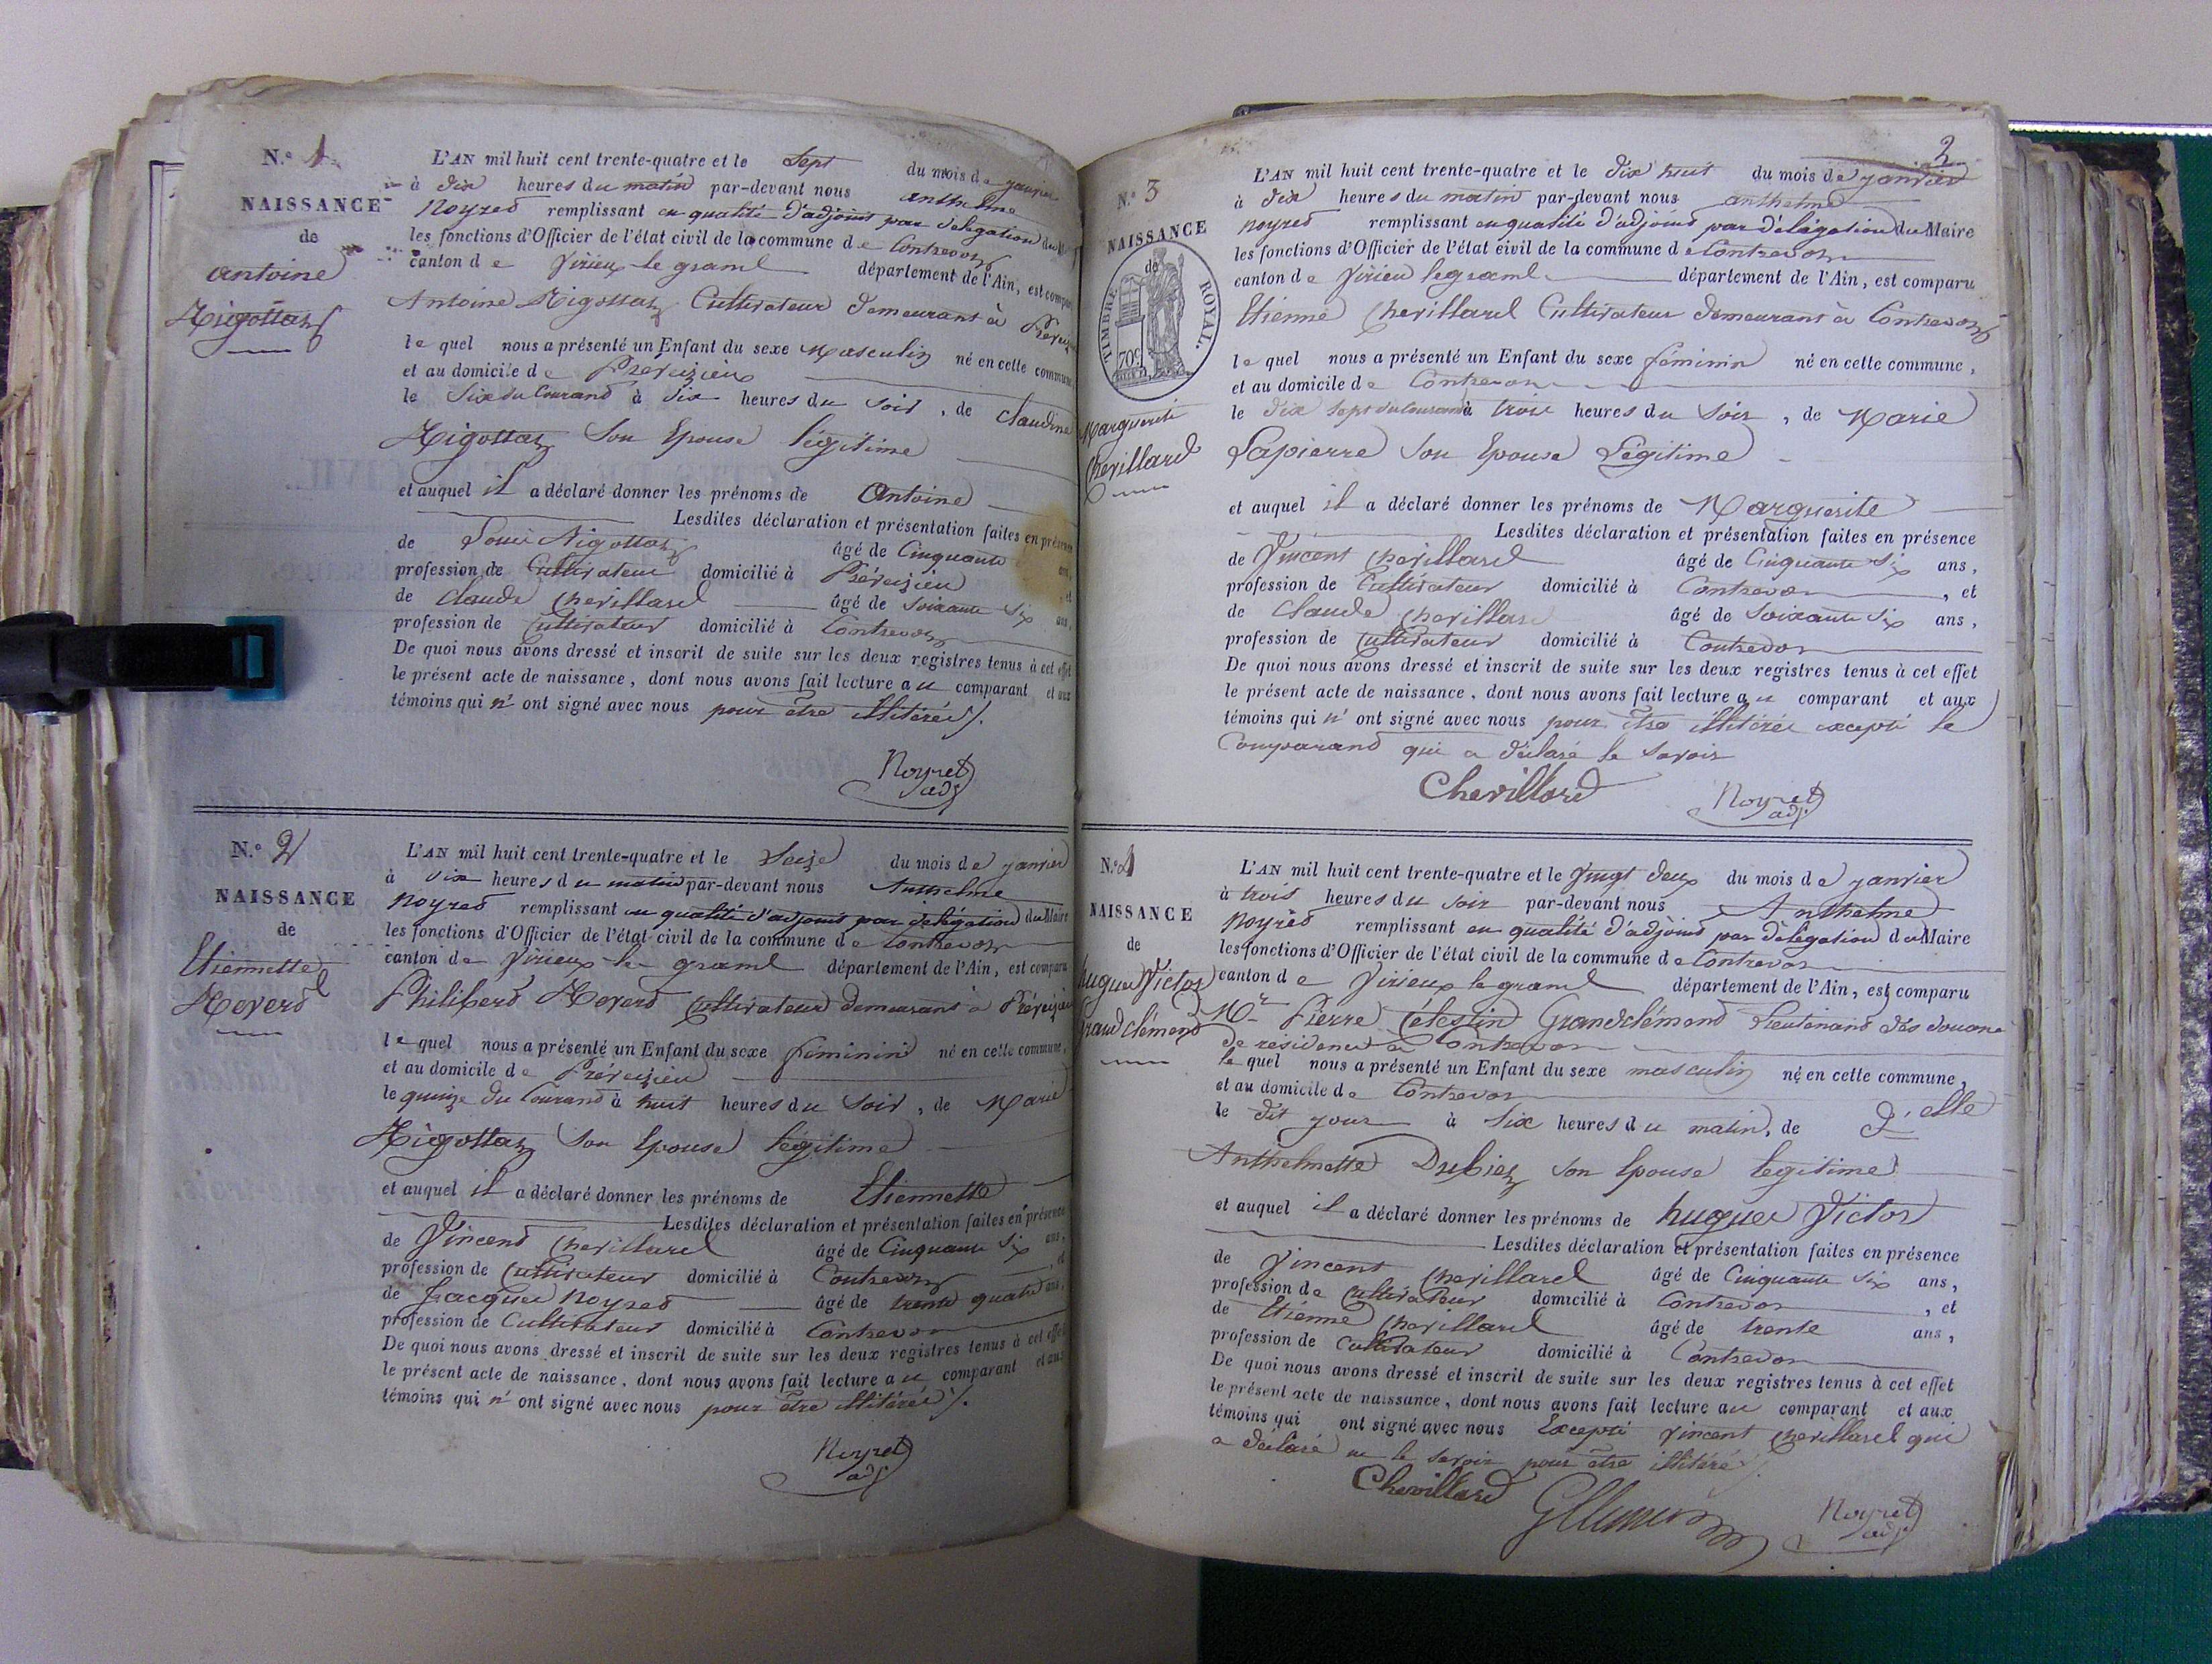 N.o 1
NAISSANCE
de
Antoine
Rigottaz
L'AN mil huit cent trente-quatre et le Sept du mois de janvier
à dix heures du matin par-devant nous anthelme
Noyret remplissant en qualité d'adjoint par délégation du
les fonctions d'Officier de l'état civil de la commune de Contrevoz
canton de Virieux le grand département de l'Ain, est comparu
Antoine Rigottaz Cultivateur demeurant à
lequel nous a présenté un Enfant du sexe Masculin né en cette commune
et au domicile de Préveizieux
le Six du Courand à dix heures du soir, de Claudine
Rigottaz Son Epouse légitime
et auquel il a déclaré donner les prénoms de Antoine
Lesdites déclaration et présentation faites en présence
de Louis Rigottaz âgé de Cinquante ans,
profession de Cultivateur domicilié à Préveizieu, et
de Claude Chevillard âgé de Soixante Six ans,
profession de Cultivateur domicilié à Contrevoz
De quoi nous avons dressé et inscrit de suite sur les deux registres tenus à cet effet
le présent acte de naissance, dont nous avons fait lecture au comparant et aux
témoins qui n' ont signé avec nous pour être illitérés /.
Noyret
adj
N.o 2
NAISSANCE
de
Etiennette
L'AN mil huit cent trente-quatre et le Seize du mois de janvier
à dix heures du matin par-devant nous Anthelme
Noyret remplissant en qualité d'adjoint par délégation du Maire
les fonctions d'Officier de l'état civil de la commune de Contrevoz
canton de Virieux le grand département de l'Ain, est comparu
Philiberd Cultivateur demeurant à Préveizieu
lequel nous a présenté un Enfant du sexe féminind né en cette commune,
et au domicile de Préveizieu
le quinze du Courand à huit heures du Soir, de Marie
Rigottaz Son Epouse légitime
et auquel il a déclaré donner les prénoms de Etiennette
Lesdites déclaration et présentation faites en présence
de Vincend Chevillard âgé de Cinquante Six ans,
profession de Cultivateur domicilié à Contrevoz, et
de Jacques Noyret âgé de trente quatre ans,
profession de Cultivateur domicilié à Contrevoz
De quoi nous avons dressé et inscrit de suite sur les deux registres tenus à cet effet
le présent acte de naissance, dont nous avons fait lecture au comparant et aux
témoins qui n' ont signé avec nous pour être illitérés /.
Noyret
adj
2
N.o 3
NAISSANCE
de
TIMBRE ROYAL.
70c
Marguerite
Chevillard
L'AN mil huit cent trente-quatre et le dix huit du mois de janvier
à dix heures du matin par-devant nous anthelme
Noyret remplissant en qualité d'adjoind par délégation du Maire
les fonctions d'Officier de l'état civil de la commune de Contrevoz
canton de Virieu le grand département de l'Ain, est comparu
Etienne Chevillard Cultivateur demeurant à Contrevoz
lequel nous a présenté un Enfant du sexe féminin né en cette commune,
et au domicile de Contrevoz
le dix Sept du Courand à trois heures du Soir, de Marie
Lapierre Son Epouse Légitime
et auquel il a déclaré donner les prénoms de Marguerite
Lesdites déclaration et présentation faites en présence
de Vincent Chevillard âgé de Cinquante Six ans,
profession de Cultivateur domicilié à Contrevoz, et
de Claude Chevillard âgé de Soixante Six ans,
profession de Cultivateur domicilié à Contrevoz
De quoi nous avons dressé et inscrit de suite sur les deux registres tenus à cet effet
le présent acte de naissance, dont nous avons fait lecture au comparant et aux
témoins qui n' ont signé avec nous pour être illitérés excepté le
Comparand qui a déclaré le Savoir
Chevillard Noyret
adj
N.o 4
NAISSANCE
de
hugues Victor
Grandclémend
L'AN mil huit cent trente-quatre et le Vingt deux du mois de janvier
à trois heures du soir par-devant nous Anthelme
Noyret remplissant en qualité d'adjoind par délégation du Maire
les fonctions d'Officier de l'état civil de la commune de Contrevoz
canton de Virieux le grand département de l'Ain, est comparu
Mr Pierre Célestin Grandclémend Lieutenand des douane
de residence à Contrevoz
lequel nous a présenté un Enfant du sexe masculin né en cette commune,
et au domicile de Contrevoz
le dit jour à Six heures du matin, de d'elle
Anthelmette Dubiez son Epouse legitime
et auquel il a déclaré donner les prénoms de hugues Victor
Lesdites déclaration et présentation faites en présence
de Vincent Chevillard âgé de Cinquante Six ans,
profession de Cultivateur domicilié à Contrevoz, et
de Etienne Chevillard âgé de trente ans,
profession de Cultivateur domicilié à Contrevoz
De quoi nous avons dressé et inscrit de suite sur les deux registres tenus à cet effet
le présent acte de naissance, dont nous avons fait lecture au comparant et aux
témoins qui ont signé avec nous Excepté Vincent Chevillard qui
a déclaré ne le Savoir pour être illitéré /.
Chevillard Noyret
adj